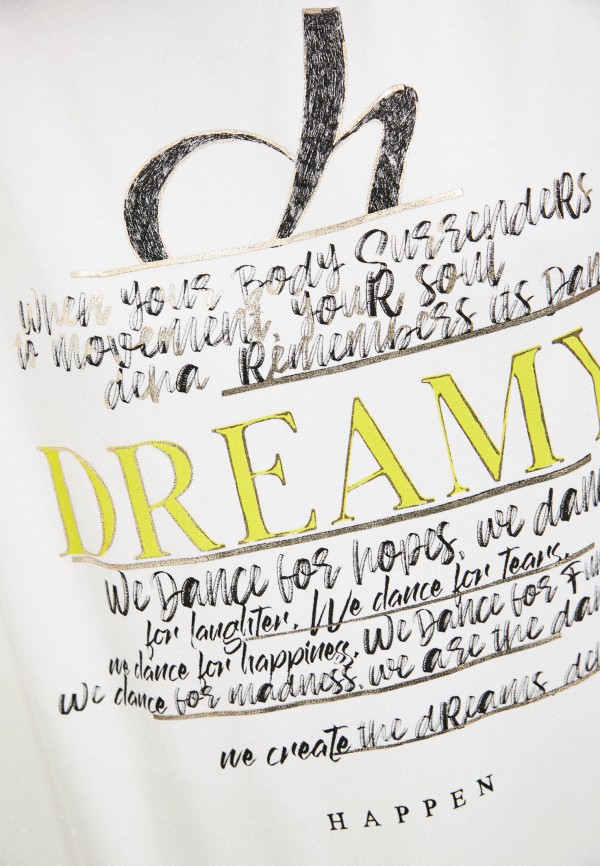 ch
When your Body Surrenders
to movement, youR soul
dena Remembers its Dan
DREAMY
We Dance for hopes, we dan
for laughter. We dance for Tears.
we dance for happiness, We Dance for Fu
We dance for madness. we are the da
we create the dReams de
HAPPEN